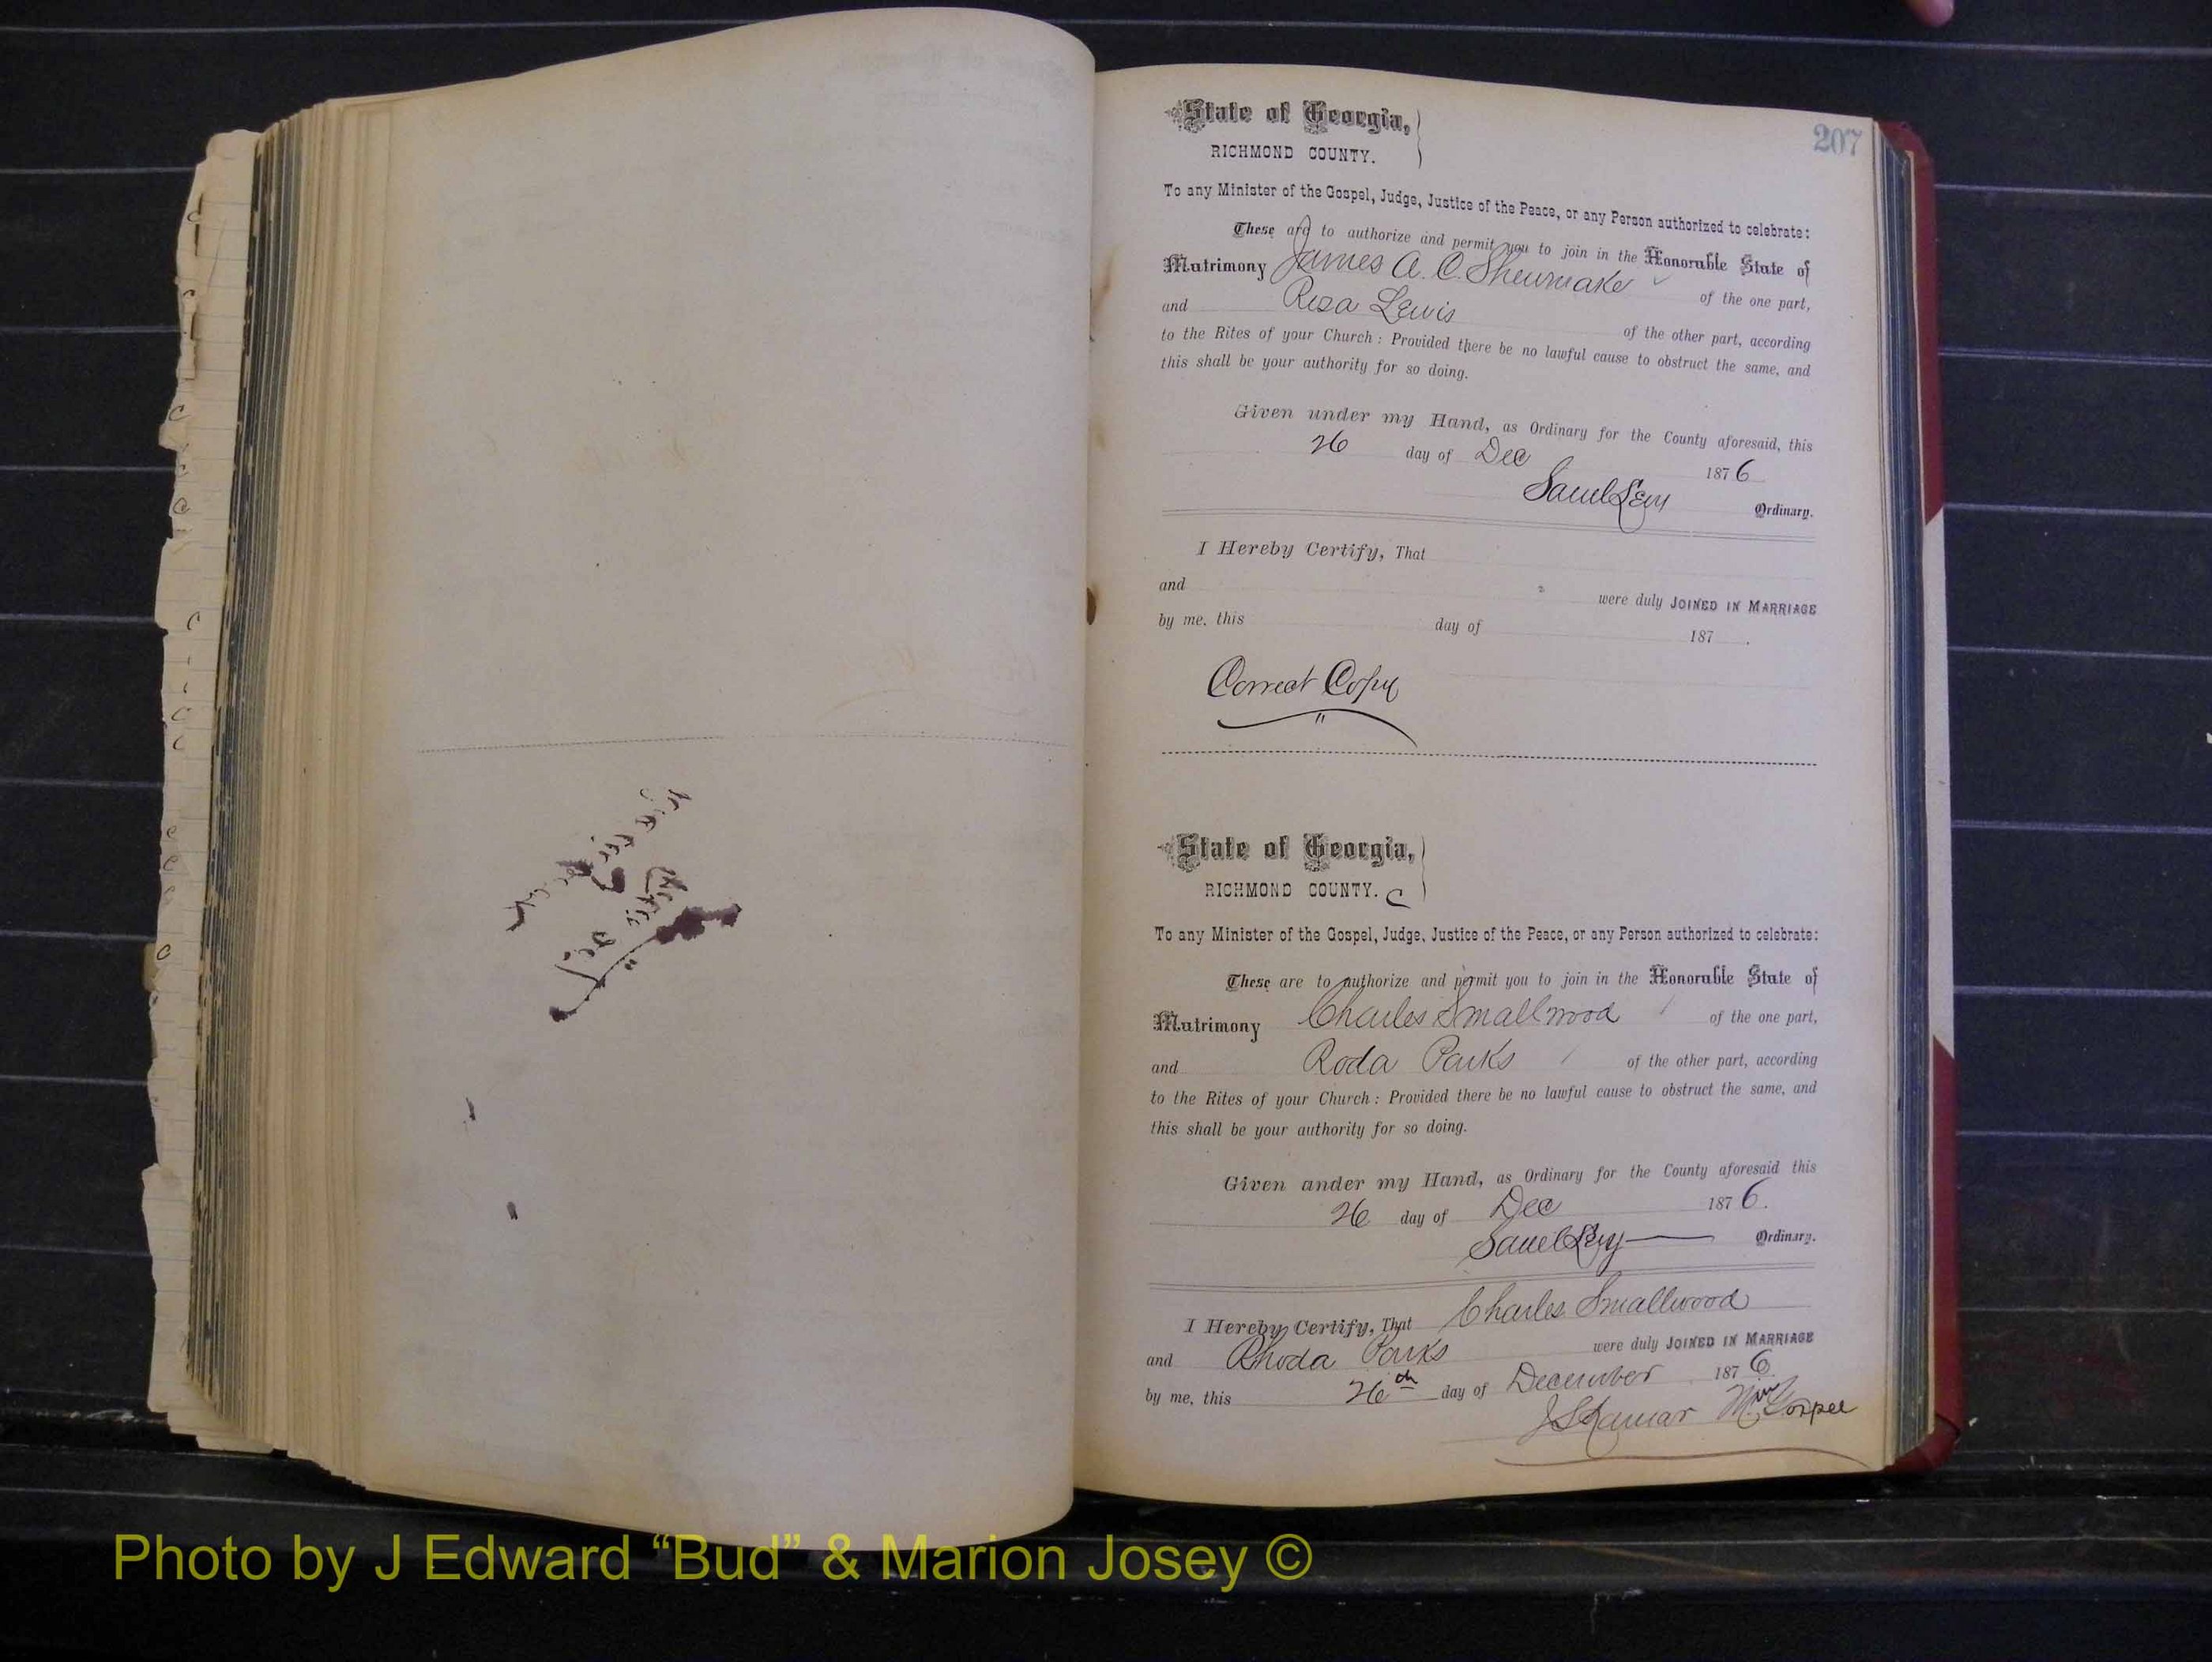 207
State of Georgia,
RICHMOND COUNTY.
To any Minister of the Gospel, Judge, Justice of the Peace, or any Person authorized to celebrate:
These are to authorize and permit you to join in the Honorable State of
Matrimony James A. C. Shewmake of the one part,
and Rosa Lewis of the other part, according
to the Rites of your Church: Provided there be no lawful cause to obstruct the same, and
this shall be your authority for so doing.
Given under my Hand, as Ordinary for the County aforesaid, this
26 day of Dec 1876
Saml Levy Ordinary.
I Hereby Certify, That
and were duly JOINED IN MARRIAGE
by me, this day of 187 .
Correct Copy
State of Georgia,
RICHMOND COUNTY. C
To any Minister of the Gospel, Judge, Justice of the Peace, or any Person authorized to celebrate:
These are to authorize and permit you to join in the Honorable State of
Matrimony Charles Smallwood of the one part,
and Roda Parks of the other part, according
to the Rites of your Church: Provided there be no lawful cause to obstruct the same, and
this shall be your authority for so doing.
Given under my Hand, as Ordinary for the County aforesaid this
26 day of Dec 1876.
Saml Levy Ordinary.
I Hereby Certify, That Charles Smallwood
and Rhoda Parks were duly JOINED IN MARRIAGE
by me, this 26th day of December 1876
J S Lamar Min Gospel
Photo by J Edward “Bud” & Marion Josey ©